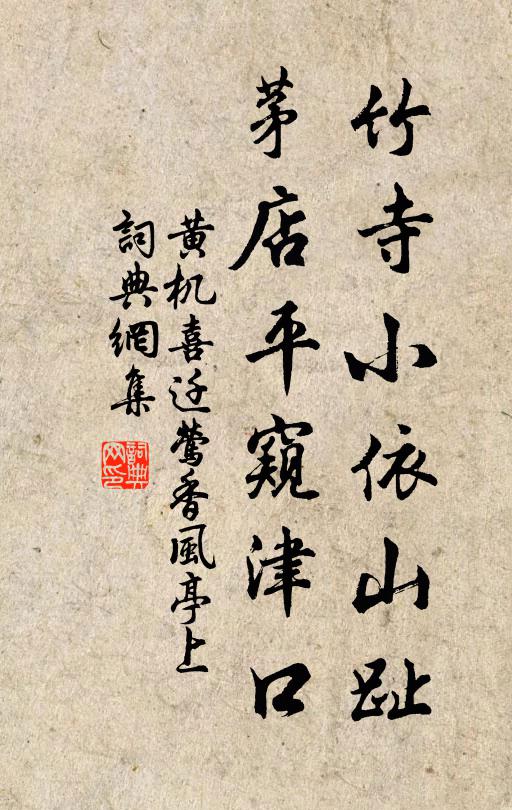 竹寺小依山趾
茅店平窺津口
黄机喜迁鶯香風亭上
詞典網集
詞典網印